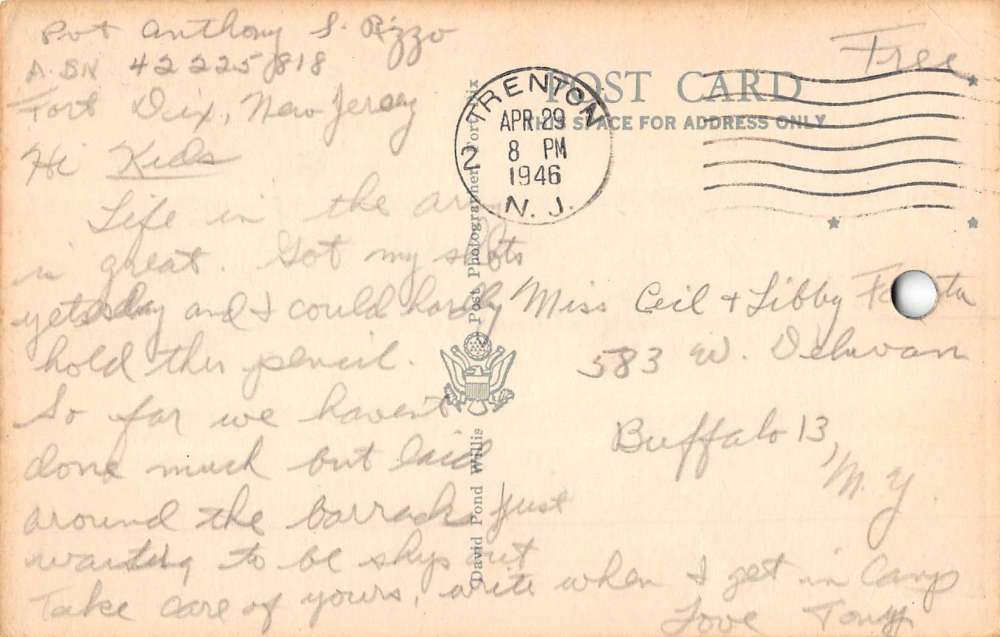 Pvt Anthony S. Rizzo
A.SN 42225818
Fort Dix, New Jersey
Hi Kids
Life in the army
is great. Got my shots
yetsday and I could hardly
hold this pencil.
So far we havent
done much but laid
around the barracks just
waiting to be ship out
Take care of yours, write when I get in Camp
Love Tony
David Pond Willis Post Photographer, Fort Dix
Free
POST CARD
THIS SPACE FOR ADDRESS ONLY
TRENTON 2
APR 29
8 PM
1946
N. J.
Miss Ceil + Libby
583 W. Delavan
Buffalo 13,
N. Y.